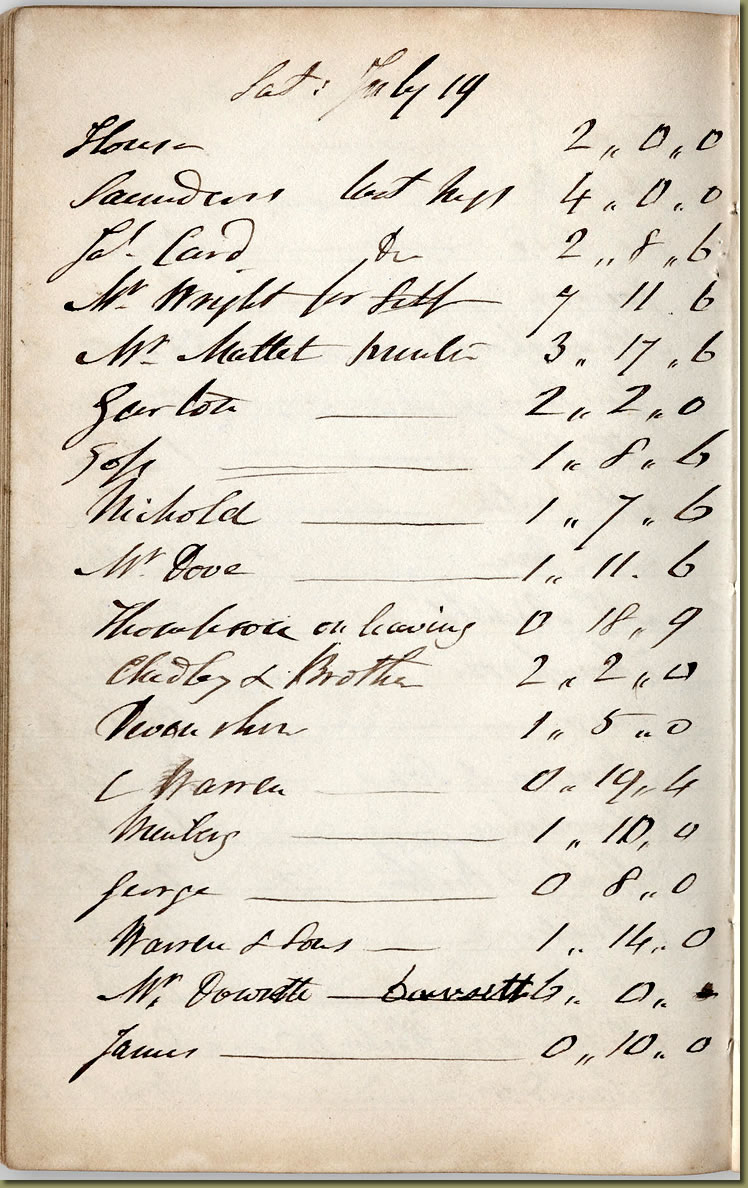 Sat: July 19
House 2 „ 0 „ 0
Saunders last 4 „ 0 „ 0
Jas. Card Do 2 „ 8 „ 6
Mr Wright for Self 7 11 6
Mr Mallet 3 „ 17 „ 6
2 „ 2 „ 0
1 „ 8 „ 6
Nichold 1 „ 7 „ 6
Mr Dove 1 „ 11 . 6
Thompson on leaving 0 18 „ 9
Chidley & Brother 2 „ 2 „ 0
Devonshire 1 „ 5 „ 0
C Warren 0 „ 19 „ 4
1 „ 10 „ 0
George 0 8 „ 0
Warren & Sons 1 „ 14 „ 0
Mr Dowsett 6 „ 0 „
James 0 „ 10 „ 0